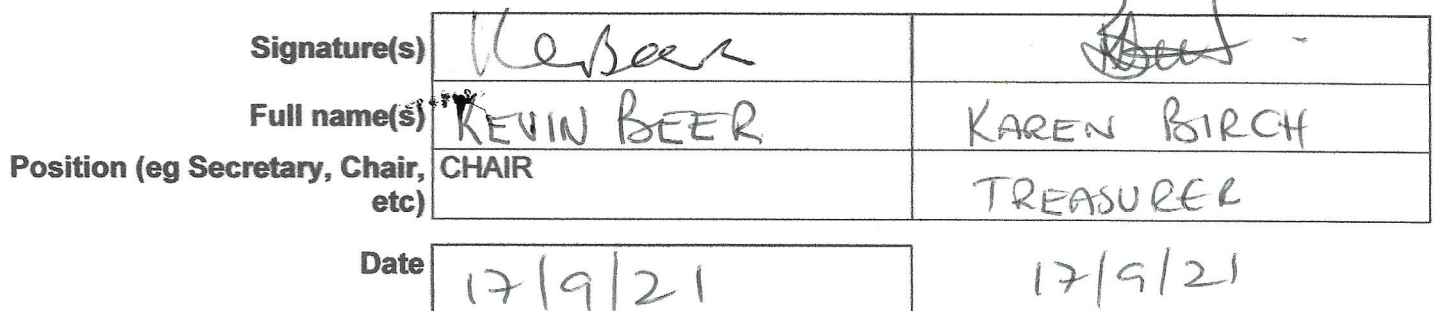 Signature(s)
Full name(s) KEVIN BEER KAREN BIRCH
Position (eg Secretary, Chair, CHAIR TREASURER
etc)
Date 17/9/21 17/9/21